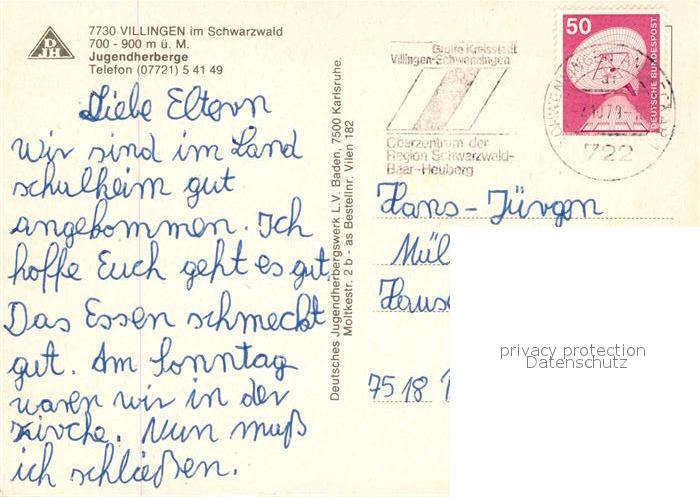 DJH
7730 VILLINGEN im Schwarzwald
700 - 900 m ü. M.
Jugendherberge
Telefon (07721) 5 41 49
Liebe Eltern
Wir sind im Land
schulheim gut
angekommen. Ich
hoffe Euch geht es gut.
Das Essen schmeckt
gut. Am Sonntag
waren wir in der
Kirche. Nun muß
ich schließen.
Deutsches Jugendherbergswerk L.V. Baden, 7500 Karlsruhe.
Moltkestr. 2 b - as Bestellnr. Vilen 1182
Große Kreisstadt
Villingen-Schwenningen
Oberzentrum der
Region Schwarzwald-
Baar-Heuberg
50
DEUTSCHE BUNDESPOST
722
Hans-Jürgen
Mül
Haus
7518
privacy protection
Datenschutz